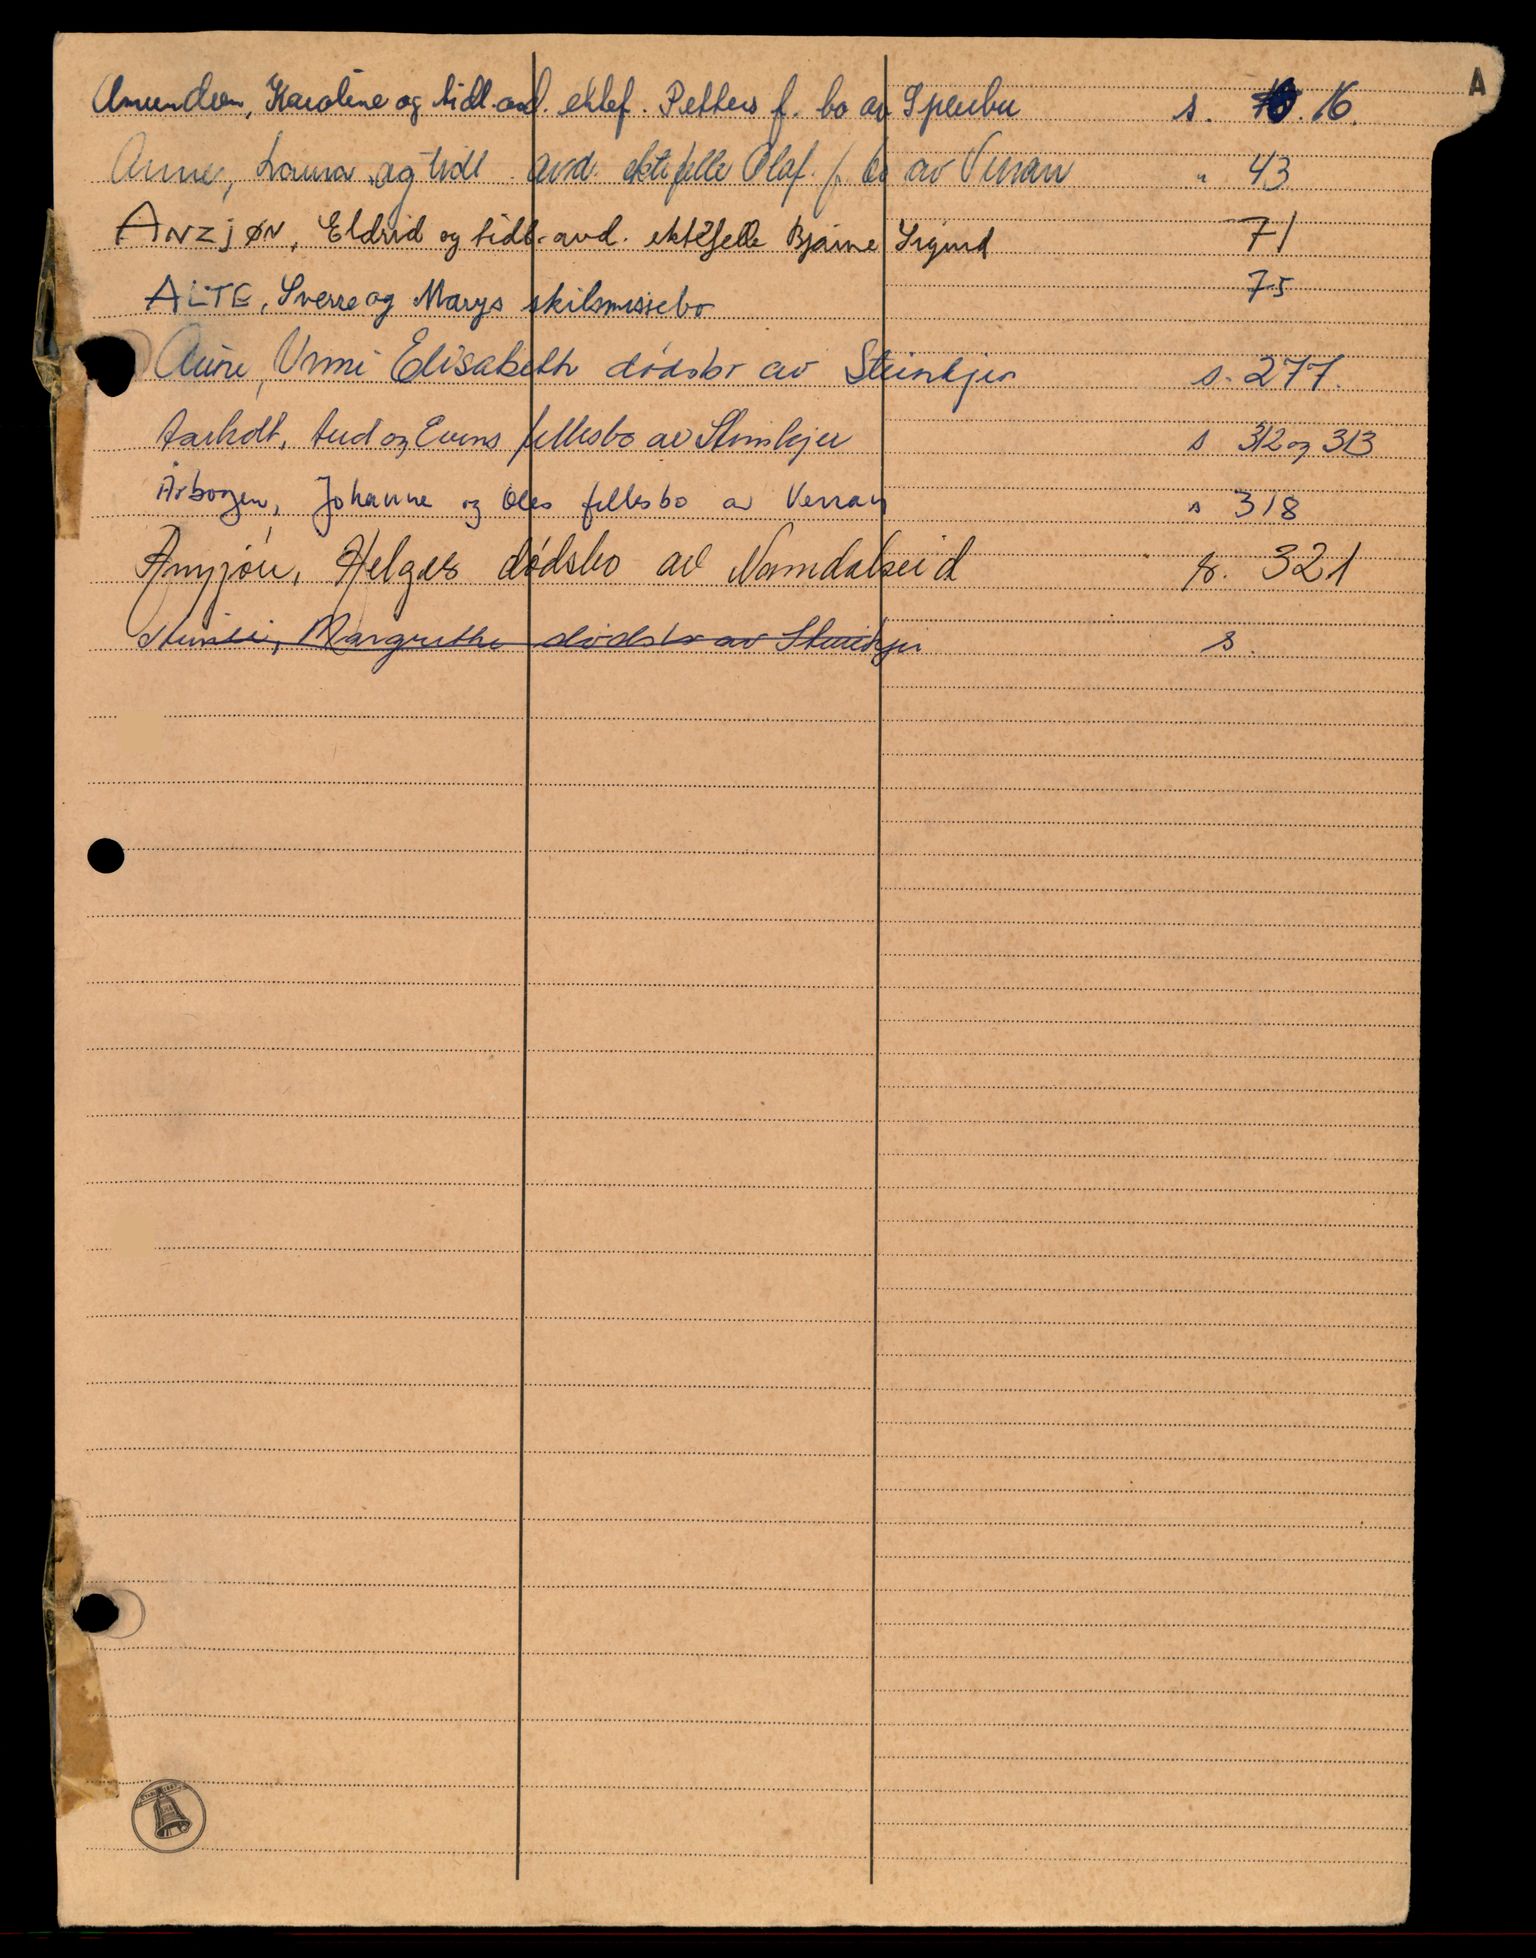 A
Amundsen, Karoline og tidl. avd. ektef. Petters f. bo av Sparbu s. 16.
Aune, Laura og tidl. avd. ektefelle Olaf. f. bo av Verran " 43
ANZJØN, Eldrid og tidl. avd. ektefelle Bjarne Sigurd 71
ALTE, Sverre og Marys skilsmissebo 75
Aune, Unni Elisabeth dødsbo av Steinkjer s. 277.
Aarholt, Aud og Evens fellesbo av Steinkjer s 312 og 313
Årbogen, Johanne og Oles fellesbo av Verran s 318
Anzjøn, Helges dødsbo av Namdalseid s. 321
Margrethe dødsbo av Steinkjer s.